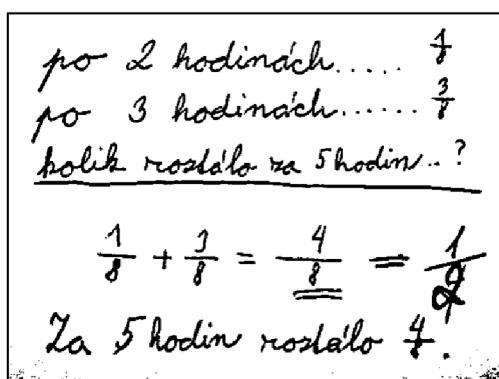 po 2 hodinách..... 1/8
po 3 hodinách...... 3/8
kolik roztálo za 5 hodin..?
1/8 + 3/8 = 4/8 = 1/2
Za 5 hodin roztálo 4/8.